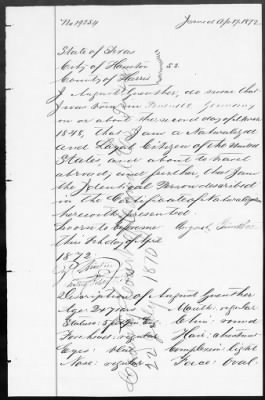 No 19254 Issued Apr 17 1872
State of Texas
City of Houston ss.
County of Harris
I August Guenther, do swear that
I was born in Germany
on or about the second day of
1848, that I am a Naturalized
and Loyal Citizen of the United
States, and about to travel
abroad, and further, that I am
the Identical Person described
in the Certificate of Naturalization
herewith presented.
Sworn to before me August Guenther
this 12th day of April
1872
Notary Public
Description of August Guenther
Age: 24 years Mouth: regular
Stature: 5 feet Chin: round
Forehead: regular Hair: chestnut
Eyes: blue Complexion: light
Nose: regular Face: Oval.
22 1870